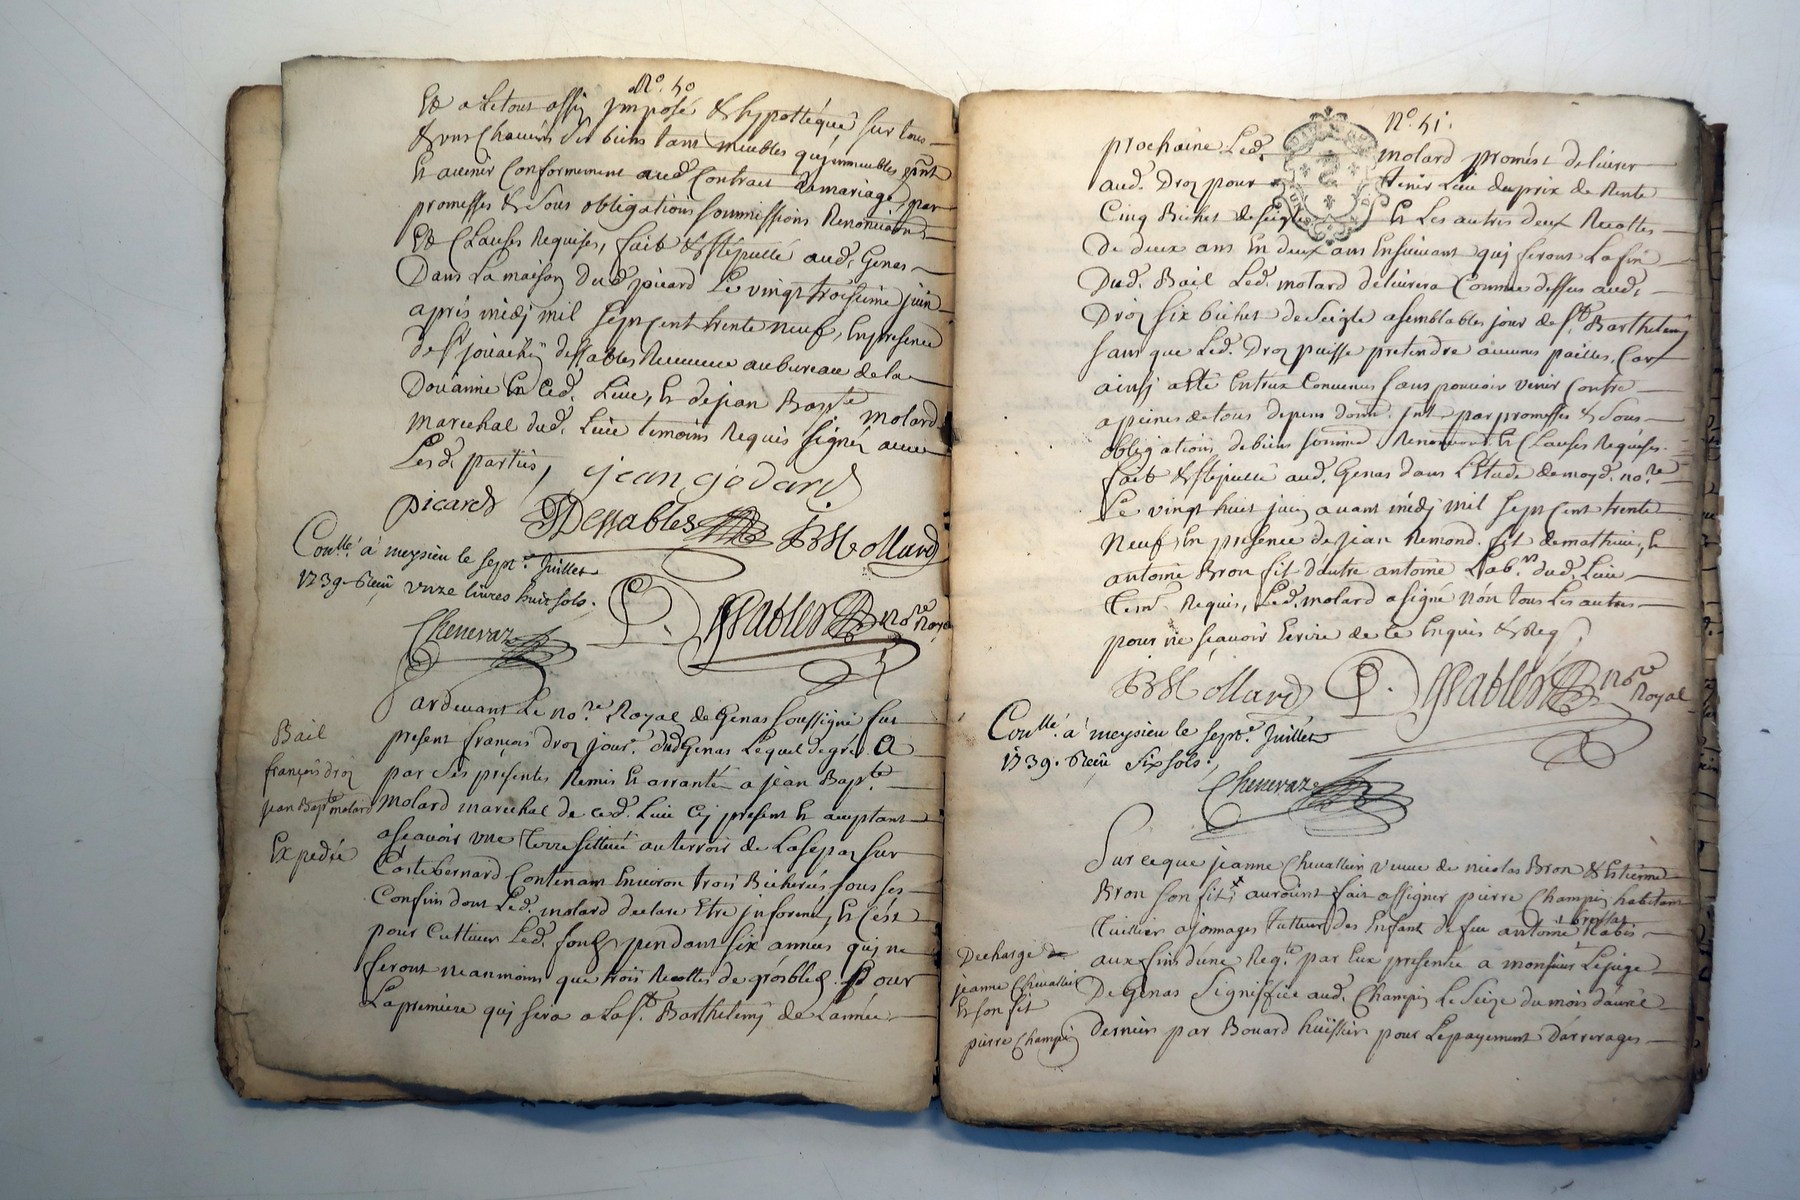 N.o 50
Et a le tout assis imposé & hypottequé sur tous
& uns Chacuns Ses biens tant meubles qu'jmmeubles pñt
Et avenir Conformement aud. Contrat de mariage, par
promesses & Sous obligations soumissions Renonciaõns
Et Clauses Requises, fait & stépullé aud. Genas
Dans La maison dud. picard Le vingt troisieme juin
apres midj mil sept Cent trente neuf, En presence
de Sr. joüachin Dessables Receveur au bureau de la
Doüanne En Ced. Lieu, Et de jean Bapte. molard
marechal dud. Lieu temoins Requis Signez avec
Lesd. parties,
jean godard
picard
JDessables
JBMollard
Coullé. à meysieu le sept.e Juillet
1739. Receu unze livres huit sols.
Chenevaz
P. Dessables no.re Royal
Bail
françois droz
jean Bapte. molard
Expediée
Pardevant Le no.re Royal de Genas soussigné fut
present françois droz jour.r dud Genas Lequel de gré A
par Ses presentes Remis Et arranté a jean Bapte.
molard marechal de ced. Lieu Cy present Et acceptant
asçavoir vne Terre sittuée au terroir de Lasepaz sur
Coste bernard Contenant Environ trois Bicherées sous ses
Confins dont Led. molard declare Etre jnformé, Et C'ést
pour Cultiver Led. fond pendant six années quj ne
seront neanmoins que trois Recoltes de gros bled. Pour
La premiere quj sera a La St. Barthelemj de L'année
N.o 51.
prochaine Led. molard promést de livrer
aud. Droz pour tenir Lieu du prix de Rente
Cinq Bichet de seigle Et Les autres deux Recoltes
De deux ans En deux ans Ensuivant quj seront La fin
Dud. Bail Led. molard délivrera Comme dessus aud.
Droz six bichet de Seigle a semblables jour de St. Barthelemj
sans que Led. Droz puisse pretendre aucunes pailles, Car
ainsj a été Entreux Convenus sans pouvoir venir Contre
a peines de tous depens dom. Int. par promesses & Sous
obligations de biens soumis.s Renonciaõns Et Clauses Requises.
fait & stépullé aud. Genas dans L'Etude de moyd. no.re
Le vingt huit juin avant midj mil sept Cent trente
Neuf, En presence de jean Remond fils de mathieu, Et
antoine Bron fils d'autre antoine Lab.rs dud. Lieu
Tem.s Requis, Led. molard a signé nón tous Les autres
pour ne sçavoir Ecrire de ce Enquis & Req.
JBMollard
P. Dessables no.re Royal
Coullé. à meysieu le sept.e Juillet
1739. Receu Six sols.
Chenevaz
Decharge de
jeanne Chevallier
Et son fils
pierre Champin
Sur ceque jeanne Chevallier veuve de nicolas Bron & Estienne
Bron son fils, auroint fait assigner pierre Champin habitant
Tuillier a jonnages Tutteur des Enfant de feu antoine Rabis
aux fins d'une Reqte. par Eux presentée a monsieur Le juge
De Genas Signiffiée aud. Champin Le Seize du mois d'avril
dernier par Bouard huissier pour Le payement d'arrerages